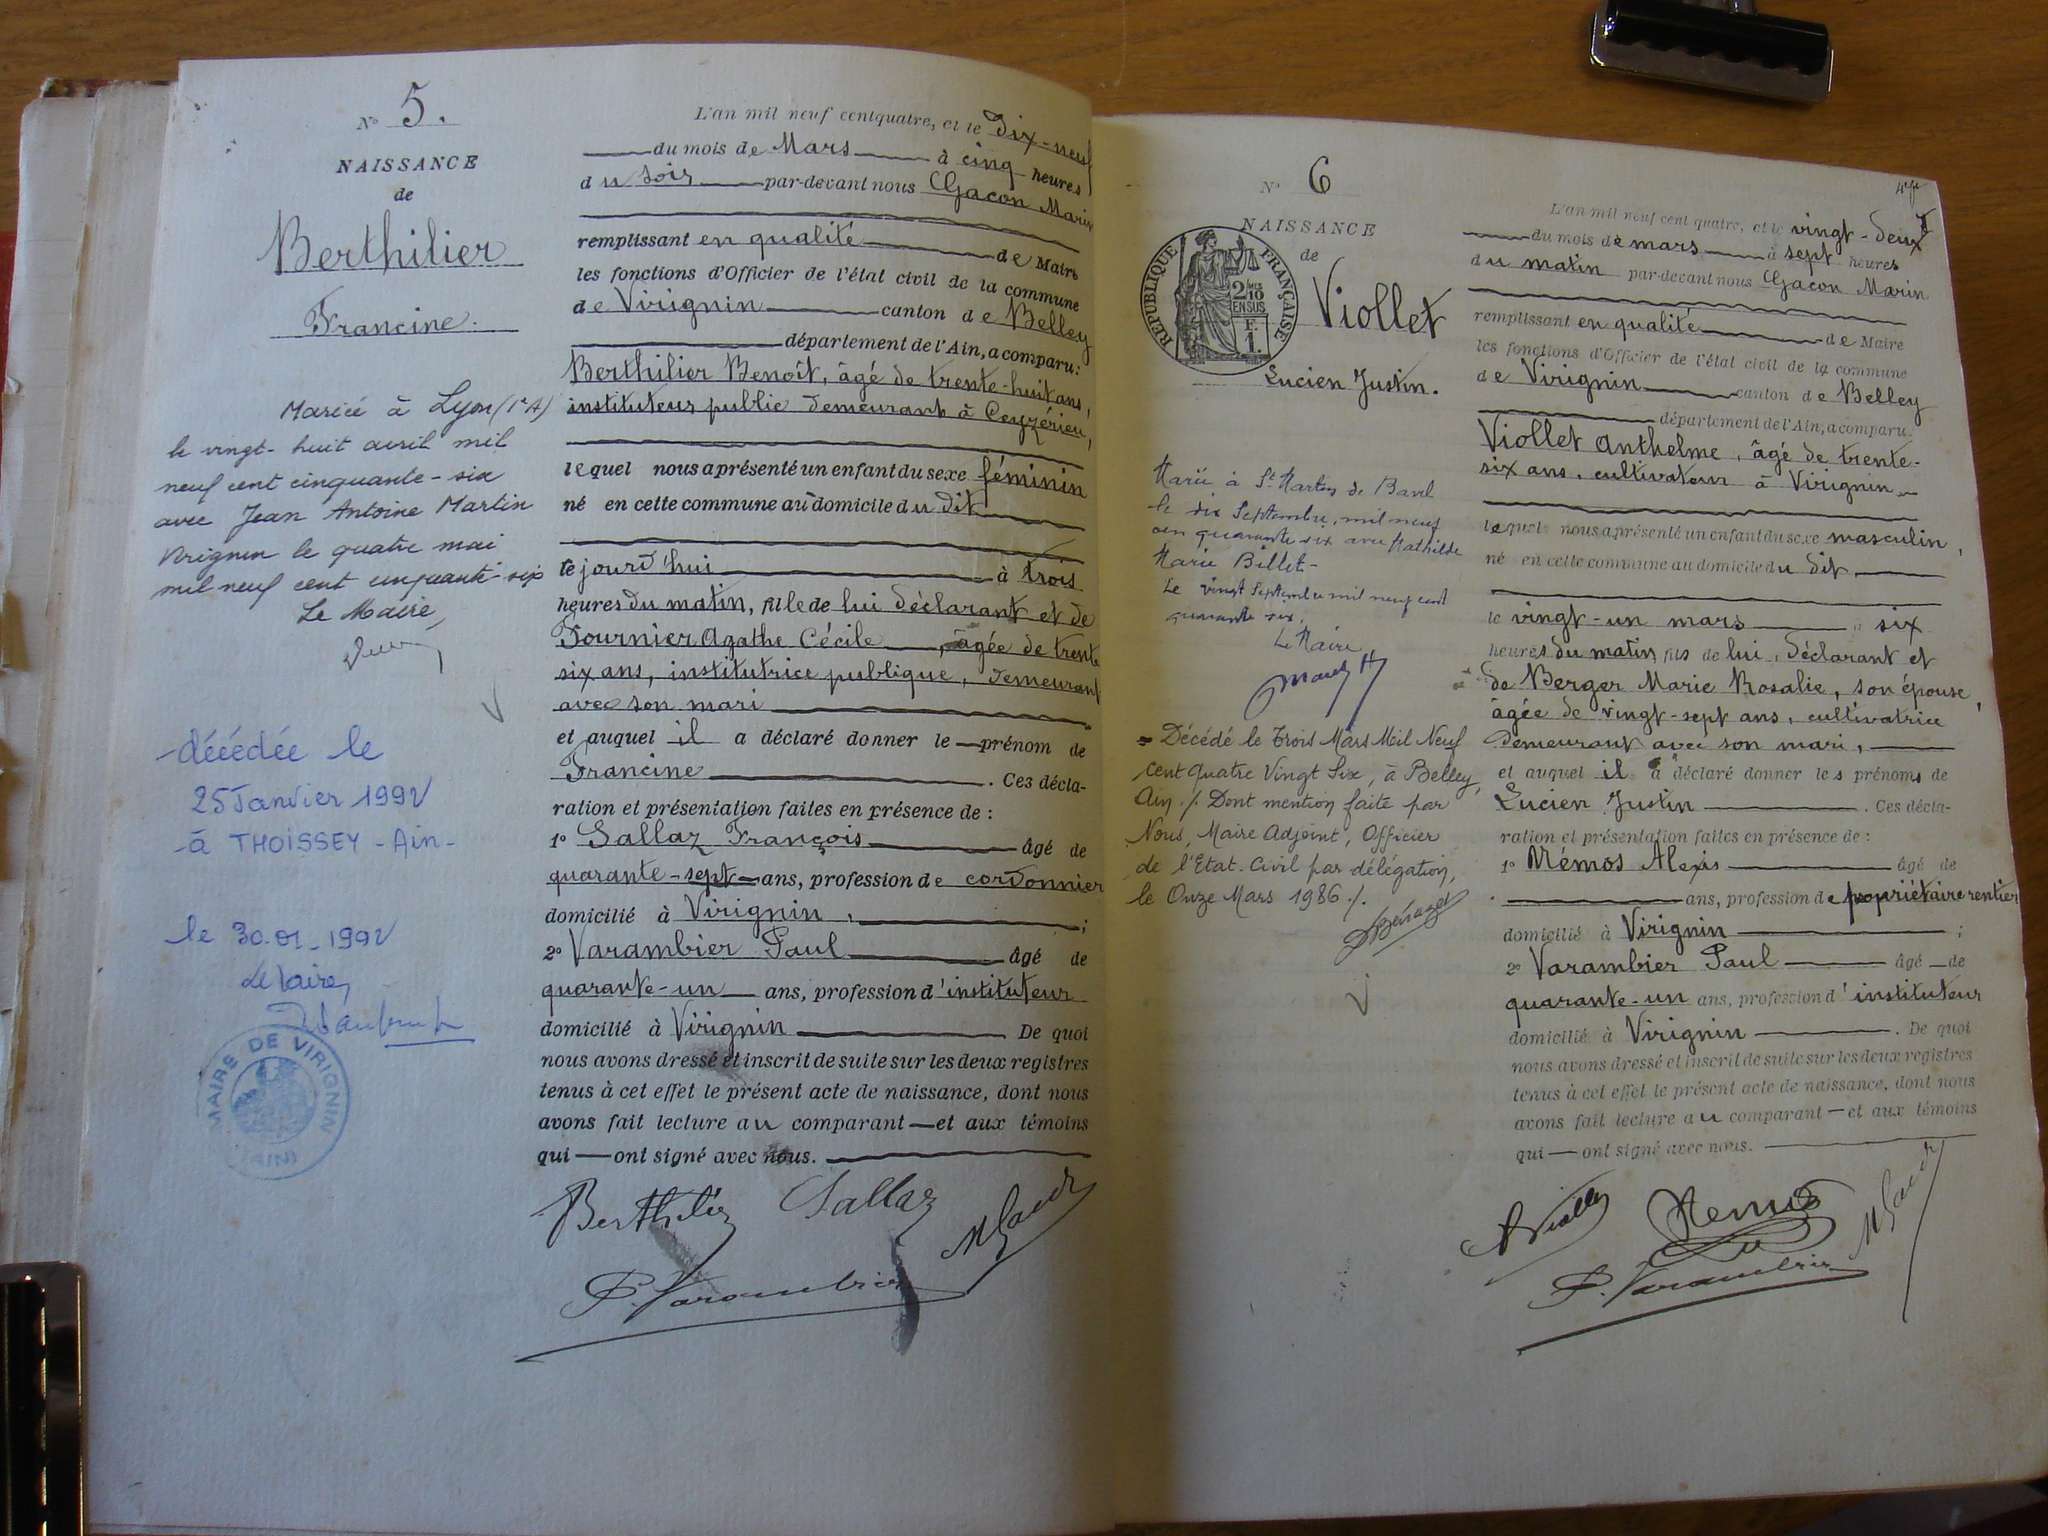 N° 5.
NAISSANCE
de
Berthilier
Francine.
Mariée à Lyon (1er A)
le vingt-huit avril mil
neuf cent cinquante-six
avec Jean Antoine Martin
Virignin le quatre mai
mil neuf cent cinquante-six
Le Maire,
décédée le
25 Janvier 1992
à THOISSEY - Ain -
le 30.01.1992
Le Maire,
MAIRE DE VIRIGNIN
(AIN)
L'an mil neuf cent quatre, et le dix-neuf
du mois de Mars à cinq heures
du soir par-devant nous Gacon Marin
remplissant en qualité de Maire
les fonctions d'Officier de l'état civil de la commune
de Virignin canton de Belley
département de l'Ain, a comparu:
Berthilier Benoît, âgé de trente-huit ans,
instituteur public demeurant à Ceyzérieu,
lequel nous a présenté un enfant du sexe féminin
né en cette commune au domicile du dit
le jourd'hui à trois
heures du matin, fille de lui déclarant et de
Fournier Agathe Cécile, âgée de trente
six ans, institutrice publique, demeurant
avec son mari
et auquel il a déclaré donner le prénom de
Francine. Ces décla-
ration et présentation faites en présence de :
1° Sallaz François âgé de
quarante-sept ans, profession de cordonnier
domicilié à Virignin, ;
2° Varambier Paul âgé de
quarante-un ans, profession d'instituteur
domicilié à Virignin De quoi
nous avons dressé et inscrit de suite sur les deux registres
tenus à cet effet le présent acte de naissance, dont nous
avons fait lecture au comparant et aux témoins
qui ont signé avec nous.
Berthilier Sallaz M Gacon
P. Varambier
N° 6
NAISSANCE
de
RÉPUBLIQUE FRANÇAISE
2/10 EN SUS
F. 1.
Viollet
Lucien Justin.
Marié à St Martin de Bavel
le dix Septembre, mil neuf
cen quarante six avec Mathilde
Marie Billet -
Le vingt Septembre mil neuf cent
quarante six,
Le Maire
Décédé le Trois Mars Mil Neuf
cent quatre Vingt Six, à Belley,
Ain ./. Dont mention faite par
Nous, Maire Adjoint, Officier
de l'Etat-Civil par délégation,
le Onze Mars 1986 ./.
L'an mil neuf cent quatre, et le vingt-deux
du mois de mars à sept heures
du matin par-devant nous Gacon Marin
remplissant en qualité de Maire
les fonctions d'Officier de l'état civil de la commune
de Virignin canton de Belley
département de l'Ain, a comparu
Viollet Anthelme, âgé de trente-
six ans, cultivateur à Virignin
lequel nous a présenté un enfant du sexe masculin,
né en cette commune au domicile du dit
le vingt-un mars à six
heures du matin, fils de lui, déclarant et
de Berger Marie Rosalie, son épouse,
âgée de vingt-sept ans, cultivatrice
demeurant avec son mari,
et auquel il a déclaré donner les prénoms de
Lucien Justin. Ces décla-
ration et présentation faites en présence de :
1° Mémos Alexis âgé de
ans, profession de propriétaire rentier
domicilié à Virignin ;
2° Varambier Paul âgé de
quarante-un ans, profession d'instituteur
domicilié à Virignin. De quoi
nous avons dressé et inscrit de suite sur les deux registres
tenus à cet effet le présent acte de naissance, dont nous
avons fait lecture au comparant et aux témoins
qui ont signé avec nous.
A Viollet Memos M Gacon
P. Varambier